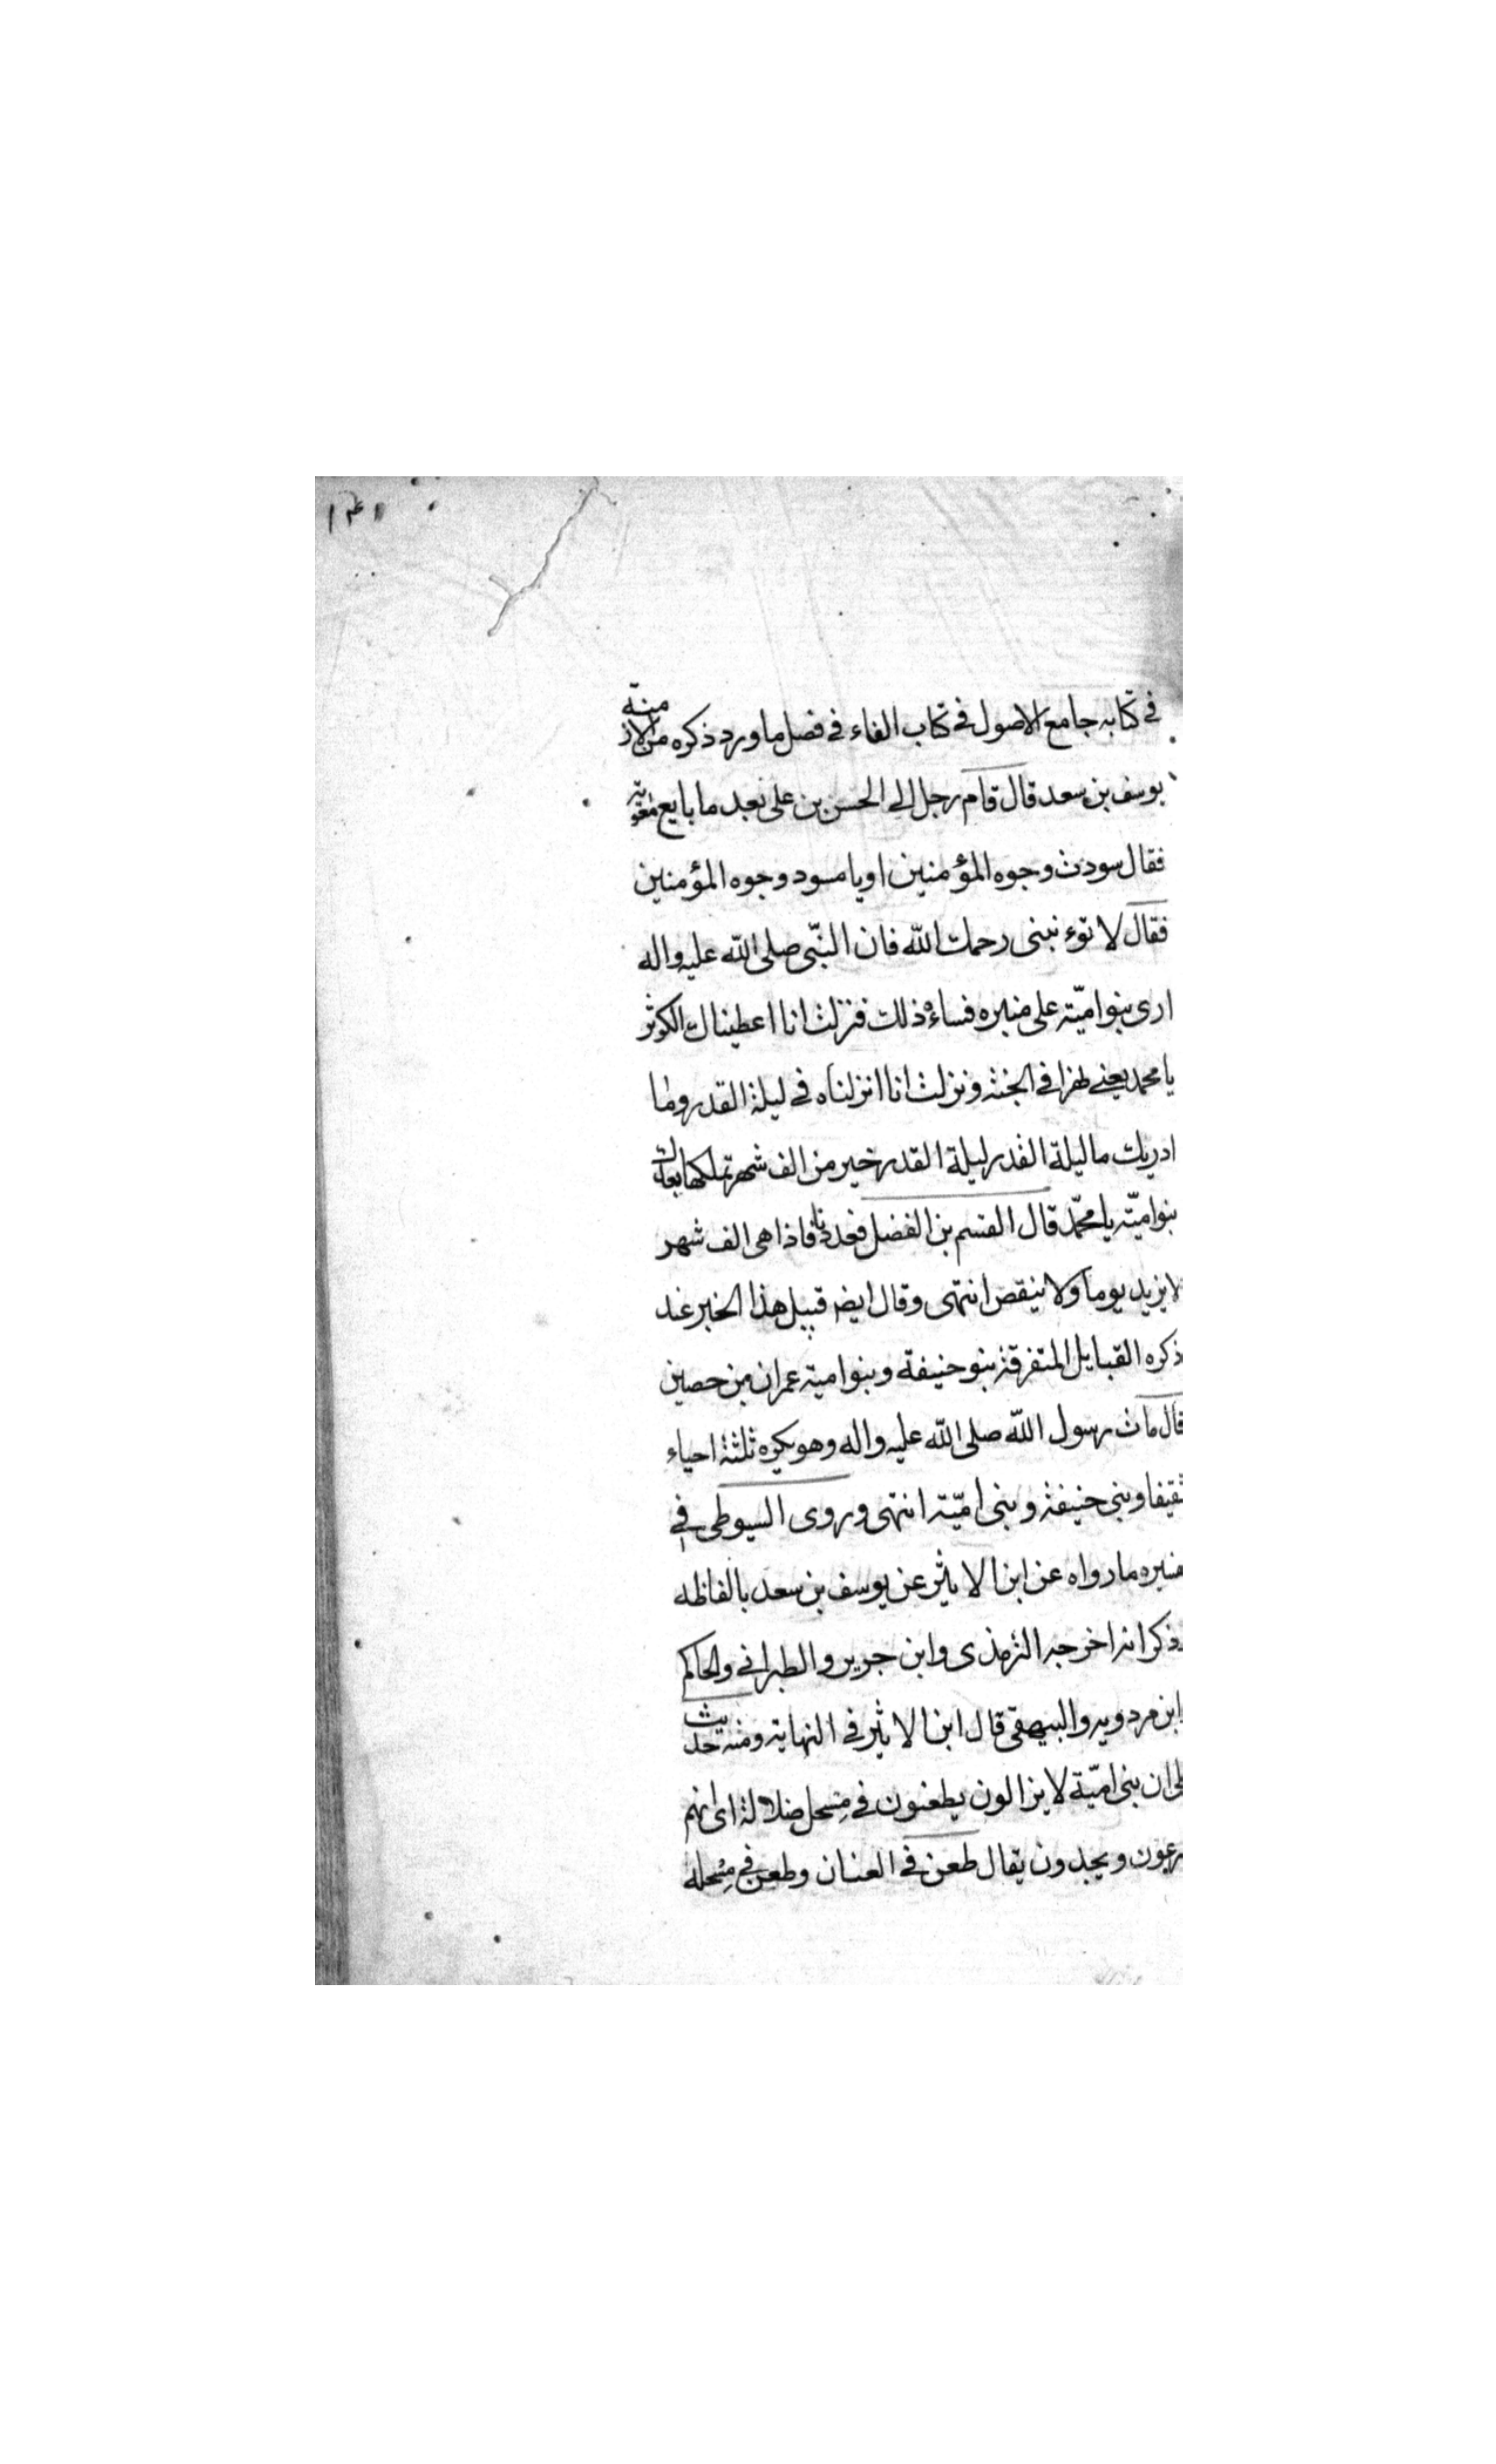 في كتابه جامع الاصول في كتاب الفاء في فضل ما ورد ذكره من الازمنة
يوسف بن سعد قال قام رجل الى الحسن بن على بعد ما بايع معوية
فقال سودت وجوه المؤمنين او يا مسود وجوه المؤمنين
فقال لا تؤنبنى رحمك الله فان النبّى صلى الله عليه واله
ارى بنو اميّة على منبره فساءه ذلك فنزلت انا اعطيناك الكوثر
يا محمد يعنى نهرا في الجنة ونزلت انا انزلناه في ليلة القدر وما
ادريك ما ليلة القدر ليلة القدر خير من الف شهر تملكها بعدك
بنو اميّة يا محمّد قال القسم بن الفضل فعددنا فاذا هى الف شهر
لا يزيد يوما ولا ينقص انتهى وقال ايضه قبيل هذا الخبر عند
ذكره القبايل المتفرقة بنو حنيفة وبنو امية عمران بن حصين
قال مات رسول الله صلى الله عليه واله وهو يكره ثلثة احياء
ثقيفا وبنى حنيفة وبنى اميّة انتهى وروى السيوطى في
ما رواه عن ابن الاثير عن يوسف بن سعد بالفاظه
ذكر انه اخرجه الترمذى وابن جرير والطبراني والحاكم
ابن مردويه والبيهقى قال ابن الاثير في النهاية ومنه حديث
ان بنى اميّة لا يزالون يطعنون في مسحل ضلالة اى انهم
ويجدون يقال طعن في العنان وطعن في مسحله